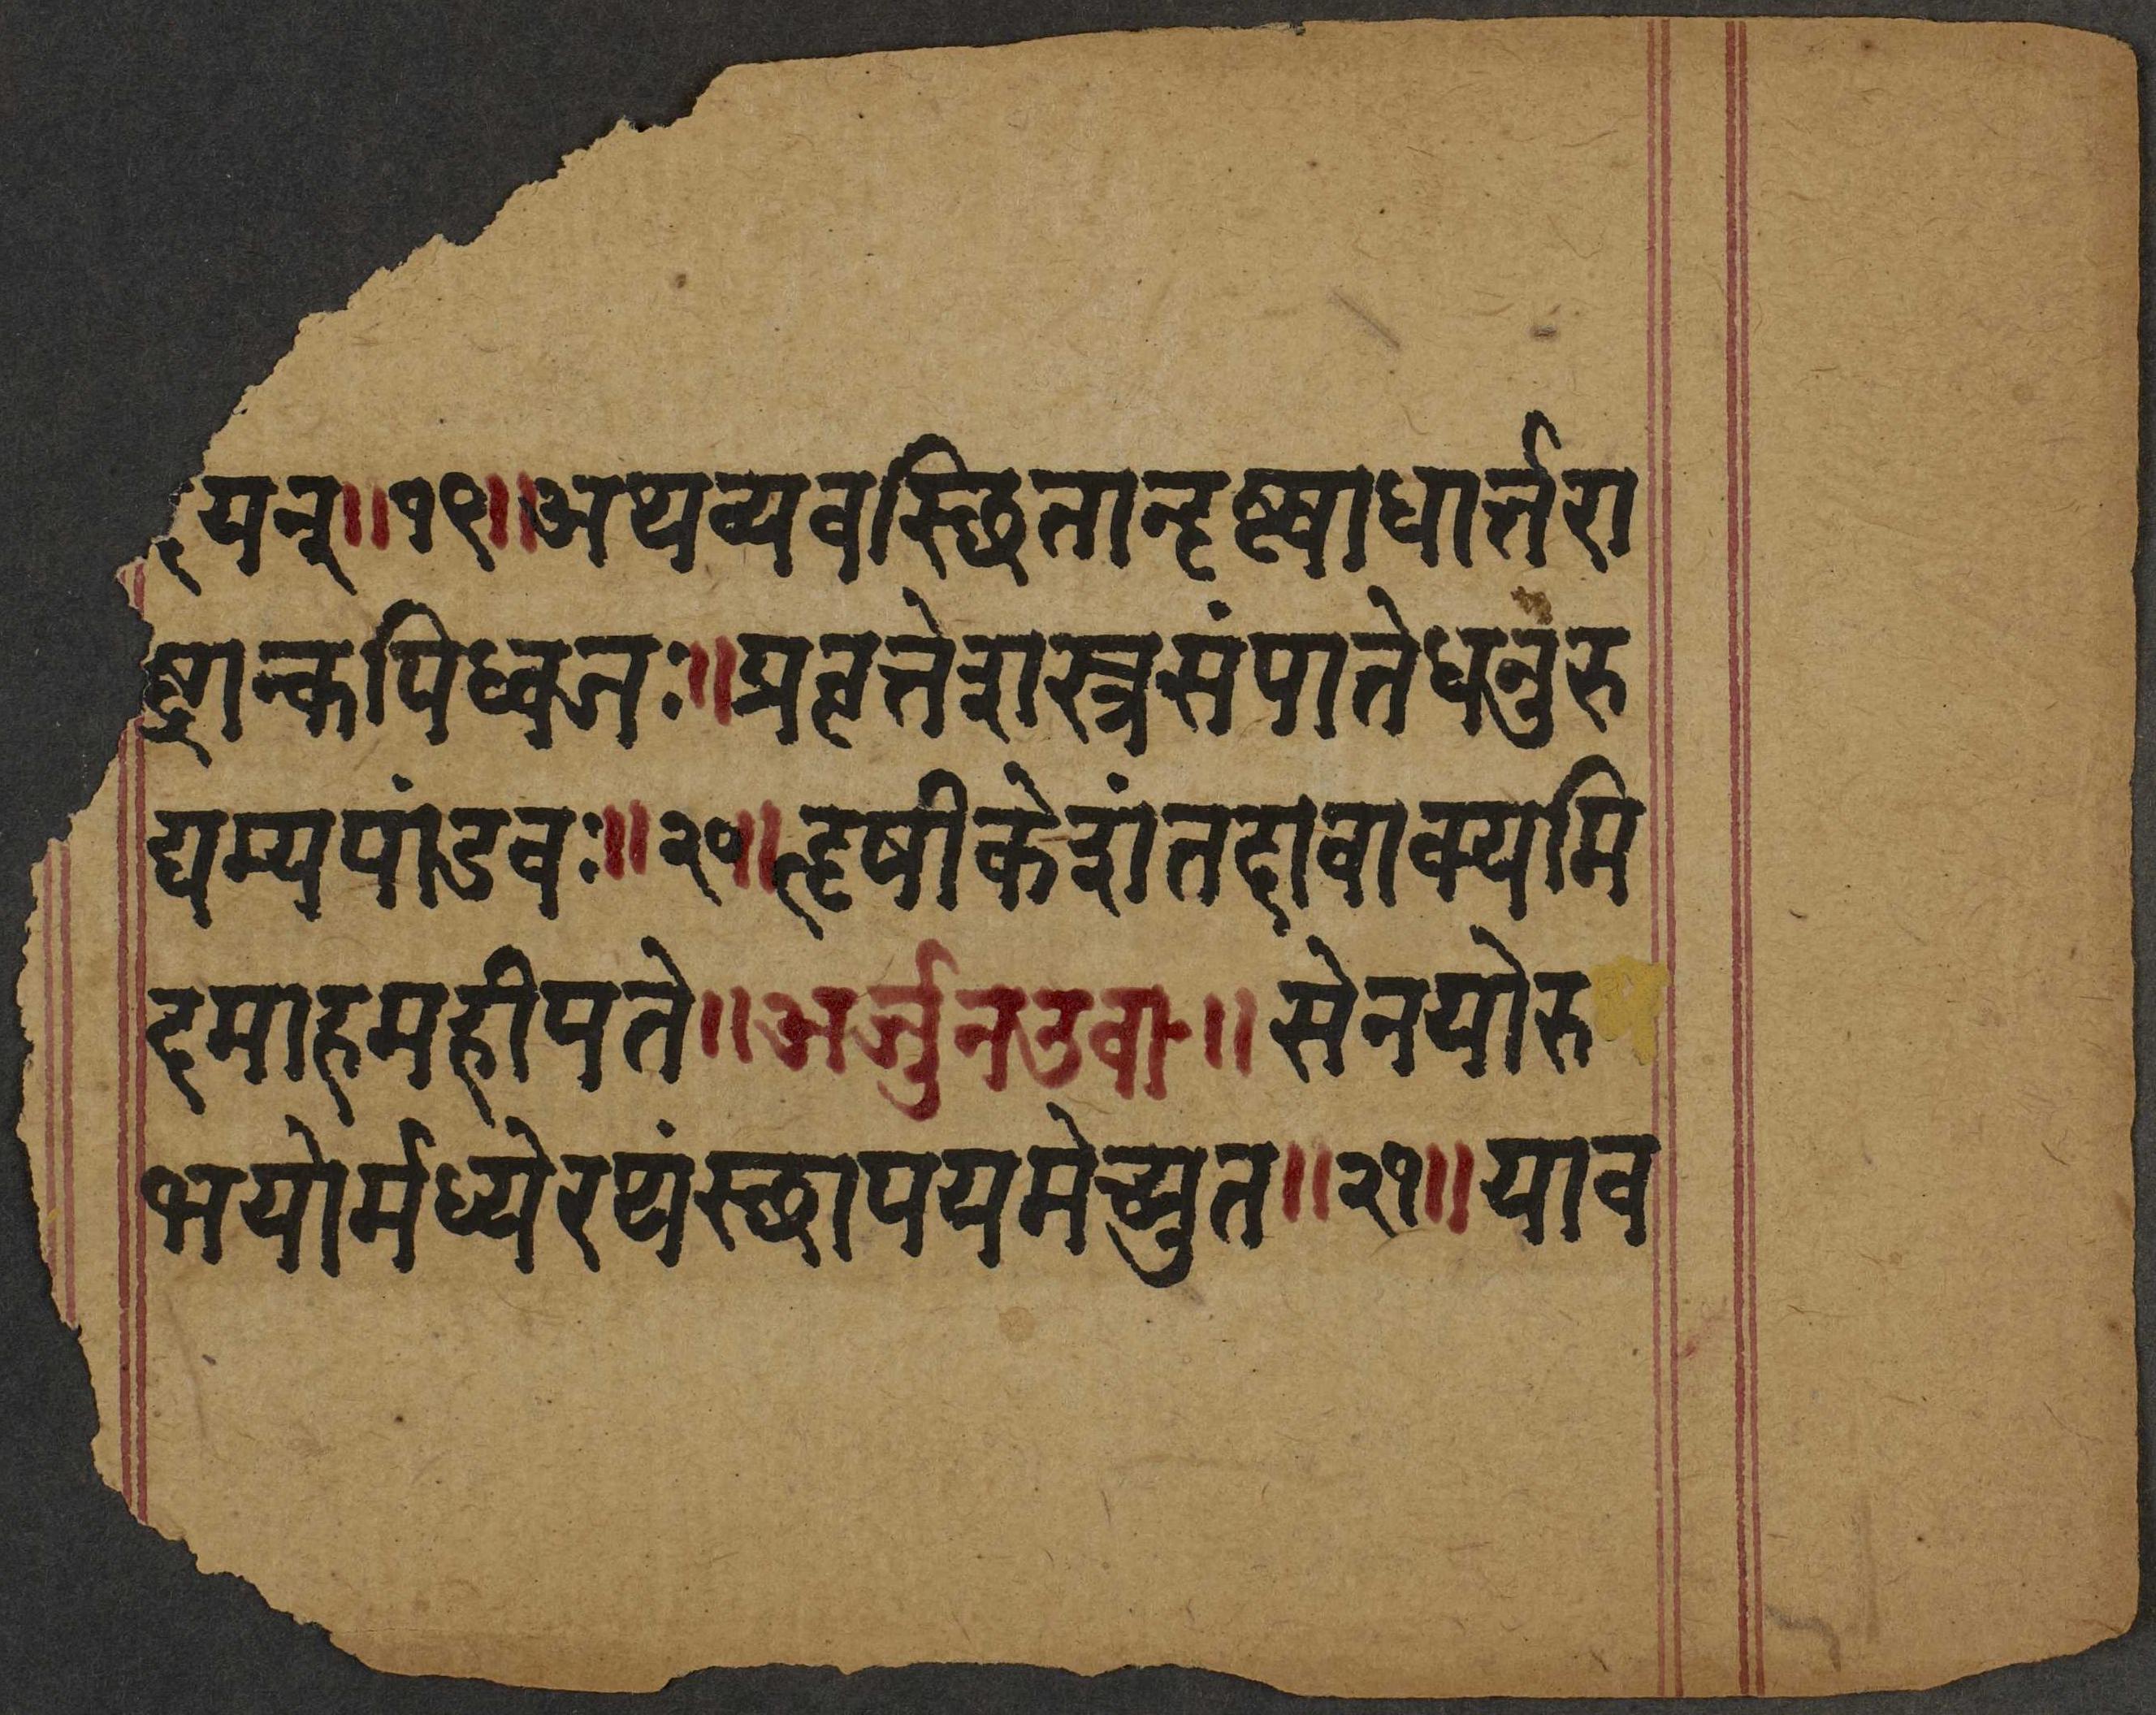 दयन्॥१९॥अथव्यवस्थितान्दृष्ट्वाधार्त्तरा
ष्ट्रान्कपिध्वजः॥प्रवृत्तेशस्त्रसंपातेधनुरु
द्यम्यपांडवः॥२०॥हृषीकेशंतदावाक्यमि
दमाहमहीपते॥अर्जुनउवा॥सेनयोरु
भयोर्मध्येरथंस्थापयमेच्युत॥२१॥याव